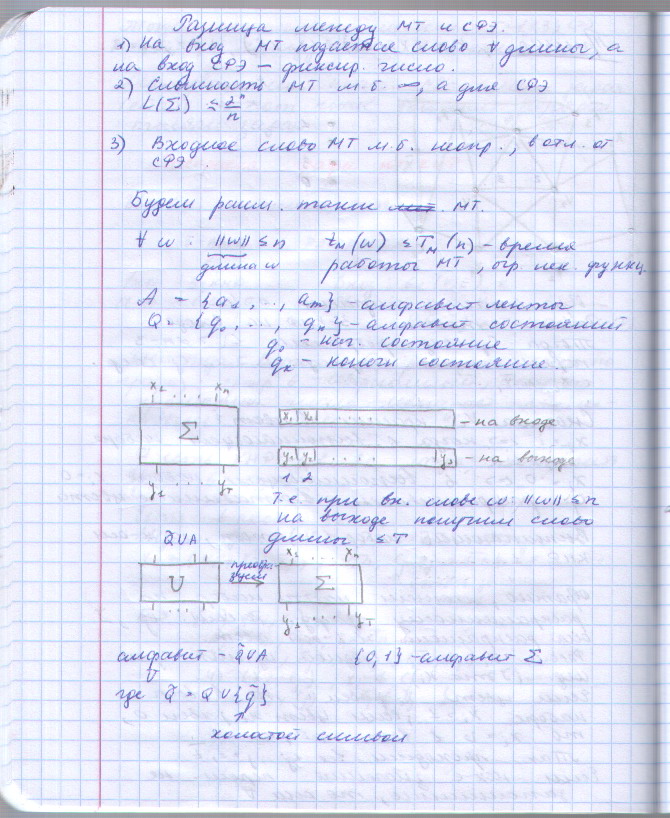 Разница между МТ и СФЭ.
1) На вход МТ подается слово ∀ длины, а
на вход СФЭ – фиксир. число.
2) Сложность МТ м.б. ∞, а для СФЭ
L(Σ) ≲ 2ⁿ/n
3) Входное слово МТ м.б. неопр., в отл. от
СФЭ.
Будем рассм. такие МТ.
∀ ω : ||ω|| ≤ n t_M(ω) ≤ T_M(n) – время
длина ω работы МТ, огр. нек. функц.
A = {a₁, ..., aₘ} – алфавит ленты
Q = {q₀, ..., qₖ} – алфавит состояний
q₀ – нач. состояние
qₖ – конечн состояние.
x₁ ... xₙ
Σ
x₁ x₂ .... – на входе
y₁ y₂ .... – на выходе
y₁ ... y_T
1 2
Т.е. при вх. слове ω: ||ω|| ≤ n
на выходе получим слово
длины ≤ T
Q̃∪A
x₁ ... xₙ
U
Σ
y₁ .... y_T
алфавит – Q̃∪A {0,1} – алфавит Σ
U
где Q̃ = Q∪{q̃}
холостой символ